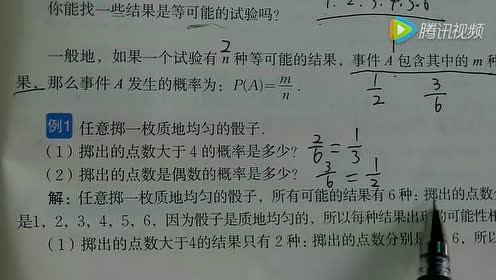 你能找一些结果是等可能的试验吗?
1. 2. 3. 4. 5. 6
腾讯视频
2
一般地,如果一个试验有 n 种等可能的结果,事件 A 包含其中的 m 种
1/2 3/6
果,那么事件 A 发生的概率为:P(A)=m/n.
例1 任意掷一枚质地均匀的骰子.
(1)掷出的点数大于 4 的概率是多少? 2/6=1/3
(2)掷出的点数是偶数的概率是多少? 3/6=1/2
解:任意掷一枚质地均匀的骰子,所有可能的结果有 6 种:掷出的点数
是1,2,3,4,5,6,因为骰子是质地均匀的,所以每种结果出现的可能性
(1)掷出的点数大于4的结果只有 2 种:掷出的点数分别是 6,所以